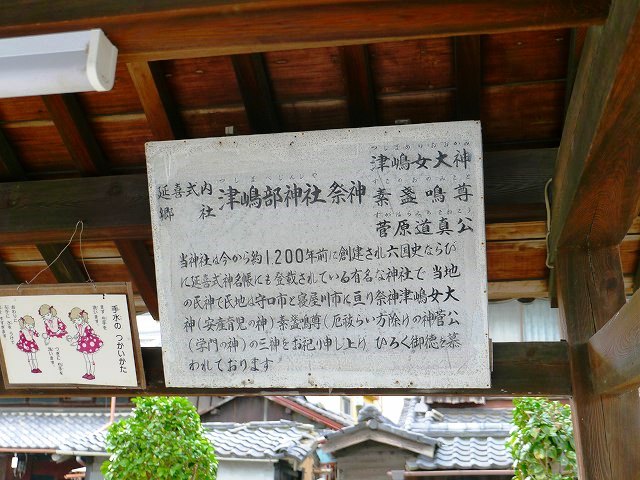 延喜式内
郷社
つしまべじんじゃ
津嶋部神社祭神
津嶋女大神
素盞嗚尊
菅原道真公
当神社は今から約1,200年前に創建され六国史ならび
に延喜式神名帳にも登載されている有名な神社で 当地
の氏神で氏地は守口市と寝屋川市に亘り祭神津嶋女大
神(安産育児の神)素盞嗚尊(厄祓い方除けの神菅公
(学問の神)の三神をお祀り申し上げ ひろく御徳を慕
われております
手水の つかいかた